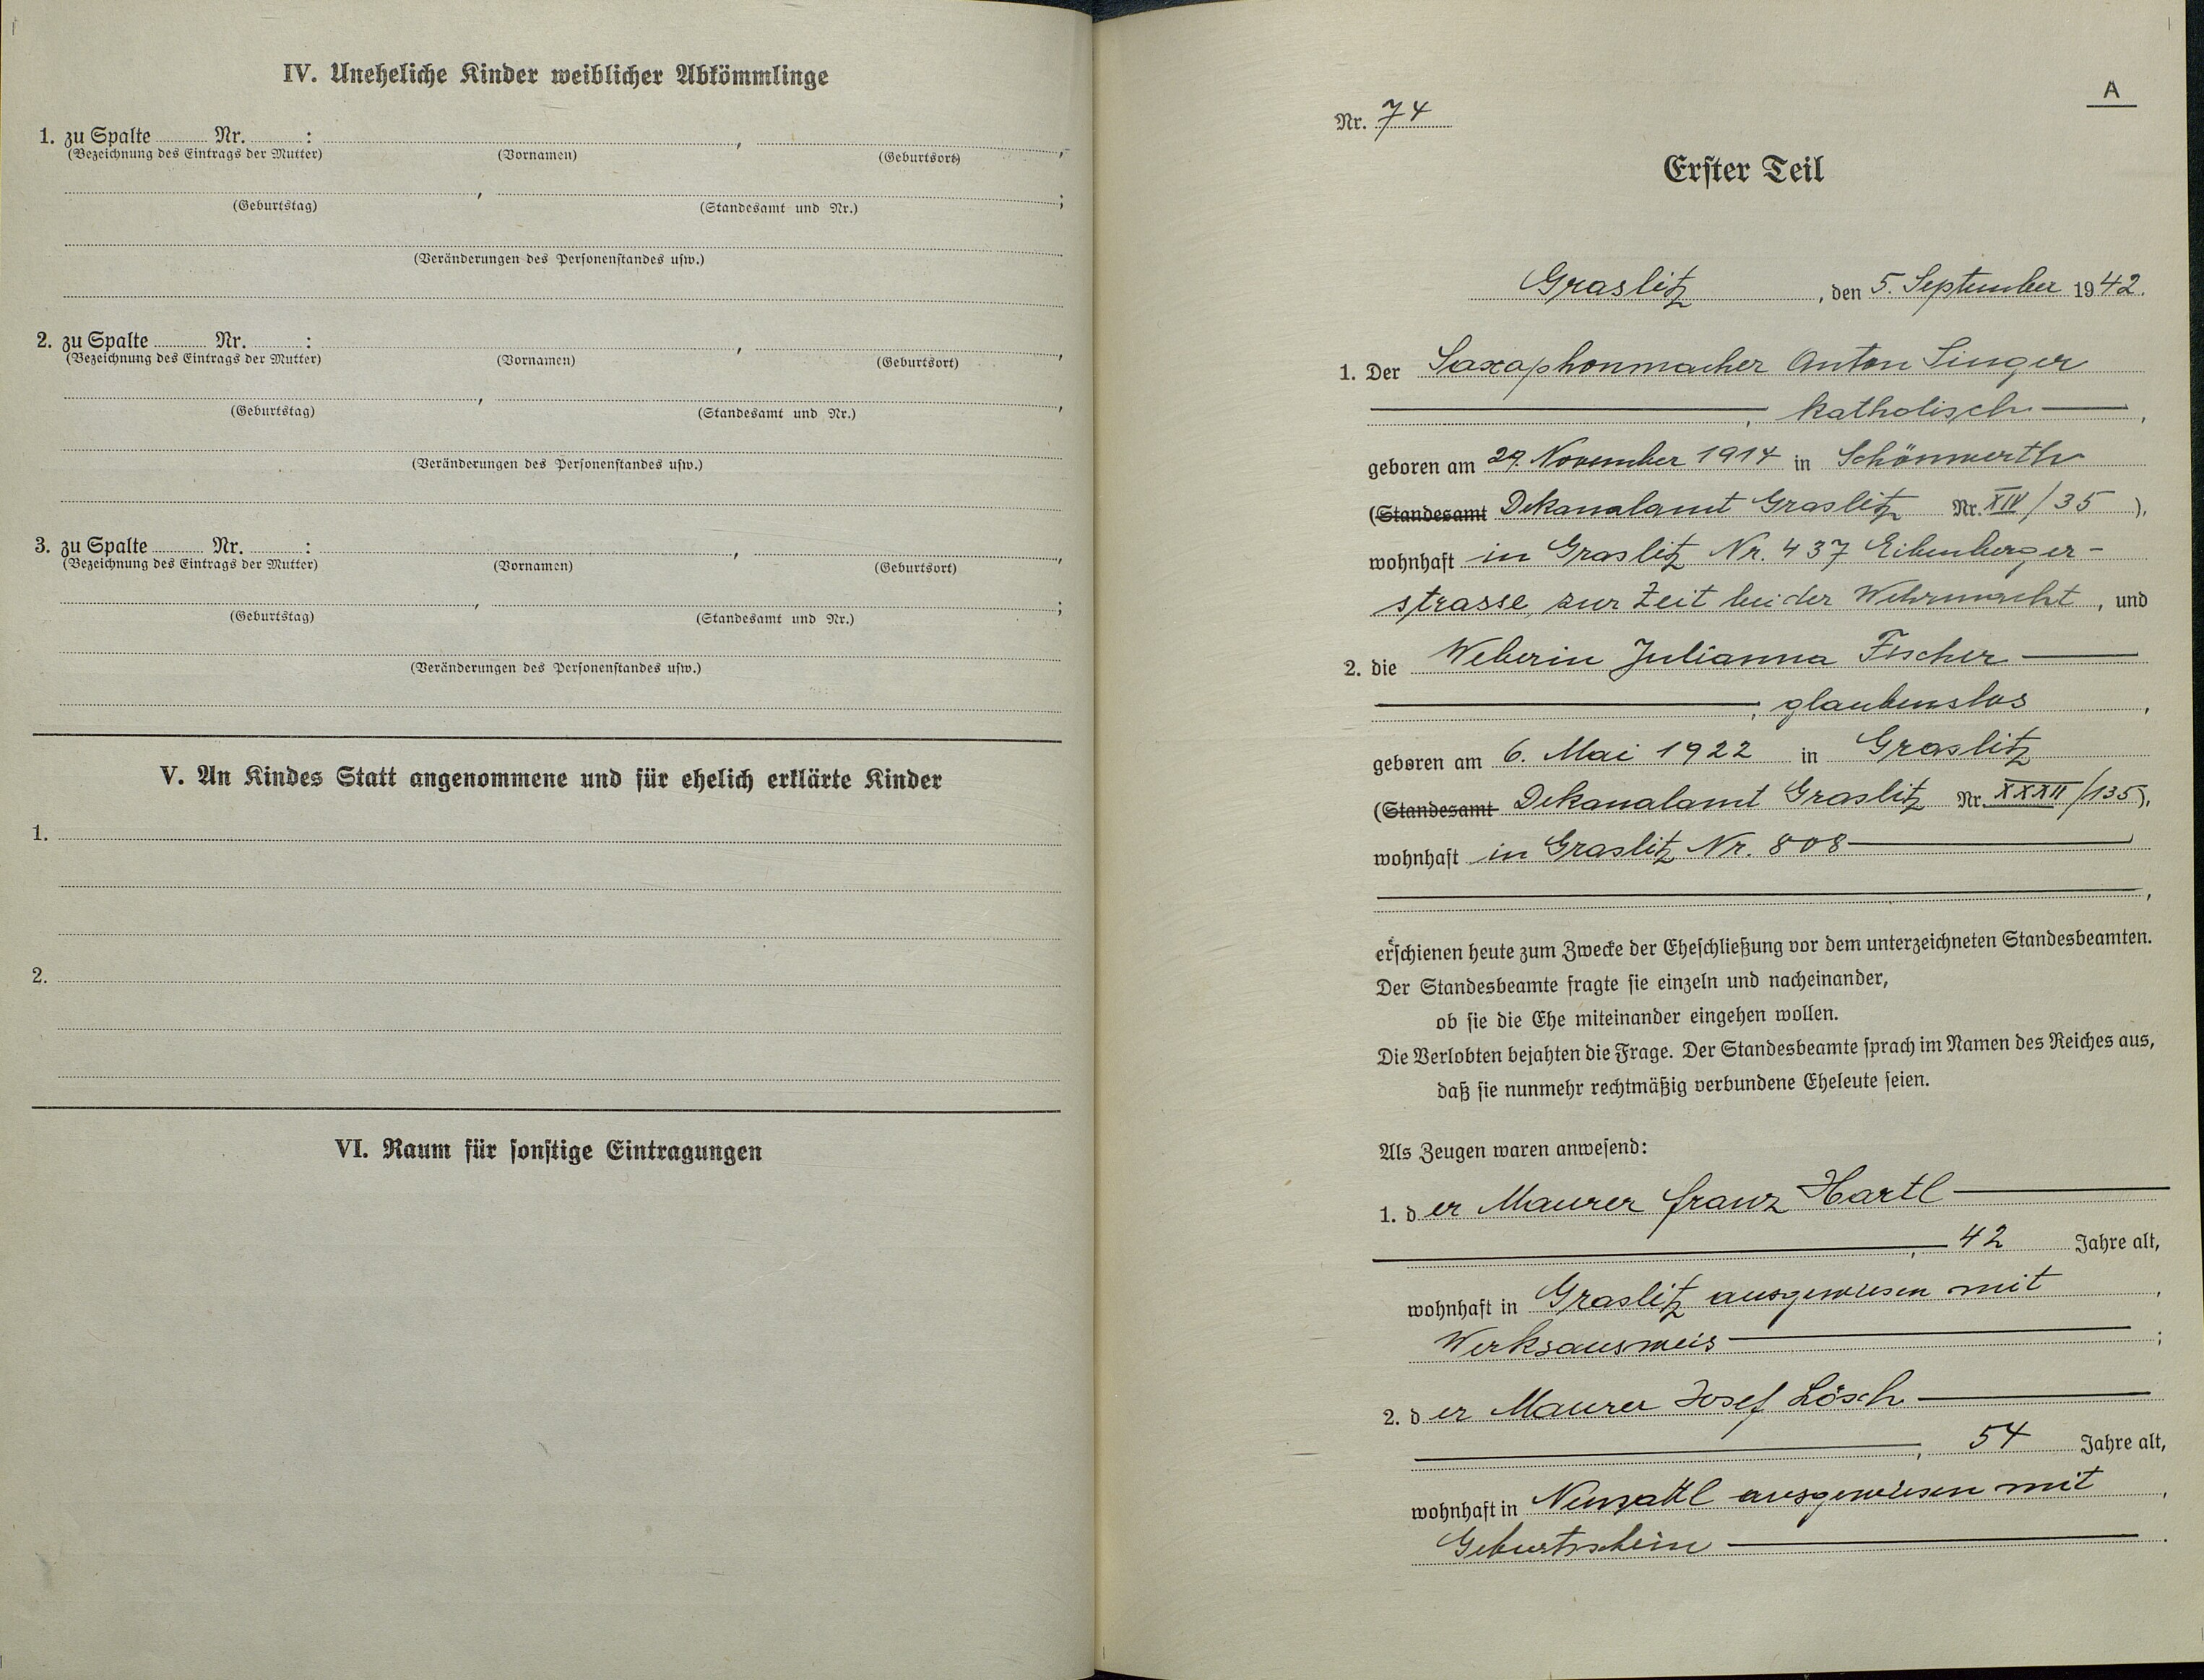 IV. Uneheliche Kinder weiblicher Abkömmlinge
1. zu Spalte ........ Nr. ........ :
(Bezeichnung des Eintrags der Mutter) (Vornamen) (Geburtsort)
(Geburtstag) (Standesamt und Nr.)
(Veränderungen des Personenstandes usw.)
2. zu Spalte ........ Nr. ........ :
(Bezeichnung des Eintrags der Mutter) (Vornamen) (Geburtsort)
(Geburtstag) (Standesamt und Nr.)
(Veränderungen des Personenstandes usw.)
3. zu Spalte ........ Nr. ........ :
(Bezeichnung des Eintrags der Mutter) (Vornamen) (Geburtsort)
(Geburtstag) (Standesamt und Nr.)
(Veränderungen des Personenstandes usw.)
V. An Kindes Statt angenommene und für ehelich erklärte Kinder
1.
2.
VI. Raum für sonstige Eintragungen
A
Nr. 74
Erster Teil
Graslitz, den 5. September 1942.
1. Der Saxaphonmacher Anton Singer
, katholisch ,
geboren am 29. November 1914 in Schönwerth
(Standesamt Dekanalamt Graslitz Nr. XIV/35),
wohnhaft in Graslitz Nr. 437 Eibenberger-
strasse, zur Zeit bei der Wehrmacht, und
2. die Weberin Julianna Fischer
, glaubenslos ,
geboren am 6. Mai 1922 in Graslitz
(Standesamt Dekanalamt Graslitz Nr. XXXII/135),
wohnhaft in Graslitz Nr. 808
,
erschienen heute zum Zwecke der Eheschließung vor dem unterzeichneten Standesbeamten.
Der Standesbeamte fragte sie einzeln und nacheinander,
ob sie die Ehe miteinander eingehen wollen.
Die Verlobten bejahten die Frage. Der Standesbeamte sprach im Namen des Reiches aus,
daß sie nunmehr rechtmäßig verbundene Eheleute seien.
Als Zeugen waren anwesend:
1. der Maurer Franz Hartl
, 42 Jahre alt,
wohnhaft in Graslitz ausgewiesen mit ,
Werksausweis ;
2. der Maurer Josef Lösch
, 54 Jahre alt,
wohnhaft in Neusattl ausgewiesen mit ,
Geburtsschein .